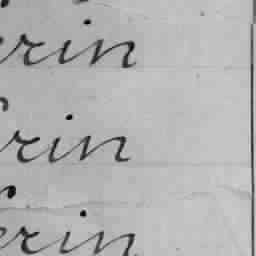 erin
rin
erin